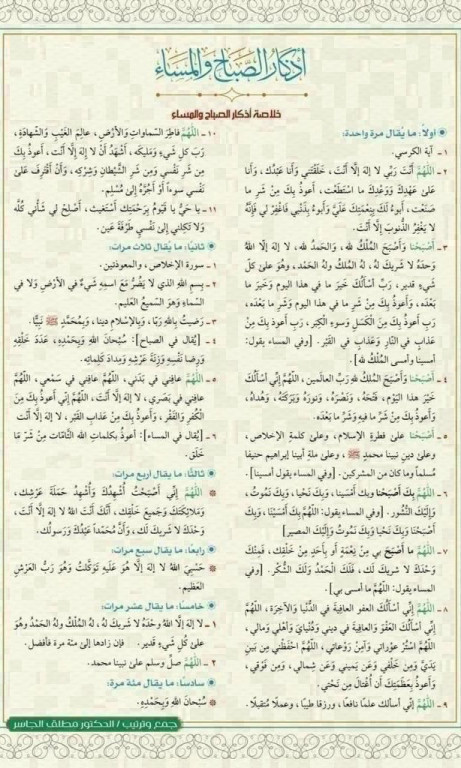 أذكار الصباح والمساء
خلاصة أذكار الصباح والمساء
أولاً: ما يُقال مرة واحدة:
١ - آية الكرسي.
٢ - اللَّهُمَّ أَنْتَ رَبِّي لا إلهَ إلَّا أَنْتَ، خَلَقْتَنِي وأنا عَبْدُكَ، وَأَنَا
عَلى عَهْدِكَ وَوَعْدِكَ ما اسْتَطَعْتُ، أعوذُ بِكَ مِنْ شَرِ ما
صَنَعْتُ، أبوءُ لَكَ بِنِعْمَتِكَ عَلَيَّ وَأبوءُ بِذَنْبِي فَاغْفِر لِي فَإنَّهُ
لا يَغْفِرُ الذُّنوبَ إلَّا أَنْتَ.
٣ - أَصْبَحْنا وَأَصْبَحَ المُلْكُ لله، والحَمدُ لله، لا إلهَ إلَّا اللهُ
وَحدَهُ لا شَريكَ لهُ، لهُ المُلكُ ولهُ الحَمْد، وهُوَ على كلّ
شَيءٍ قدير، رَبِّ أسْأَلُكَ خَيرَ ما في هذا اليوم وَخَيرَ ما
بَعْدَه، وَأَعوذُ بِكَ مِنْ شَرِ ما في هذا اليوم وَشَرِ ما بَعْدَه،
رَبِ أَعوذُ بِكَ مِنَ الْكَسَلِ وَسوءِ الْكِبَر، رَبِ أعوذُ بِكَ مِنْ
عَذابٍ في النّارِ وَعَذابٍ في القَبْر. [وفي المساء يقول:
أمسينا وأمسى المُلْكُ لله].
٤ - أَصْبَحْنا وَأَصْبَحَ المُلكُ للهِ رَبِّ العالَمين، اللَّهُمَّ إنِّي أسْأَلُكَ
خَيْرَ هذا اليَوْم، فَتْحَهُ، وَنَصْرَهُ، وَنورَهُ وَبَرَكَتَهُ، وَهُداهُ،
وَأَعوذُ بِكَ مِنْ شَرِّ ما فيهِ وَشَرِّ ما بَعْدَه.
٥ - أَصْبَحْنا على فطرةِ الإسلام، وعلى كلمةِ الإخلاص،
وعلى دينِ نبينا محمدٍ ﷺ، وعلى ملةِ أبينا إبراهيم حنيفا
مُسلماً وما كان من المشركين. [وفي المساء يقول أمسينا].
٦ - اللَّهُمَّ بِكَ أَصْبَحْنا وبك أمسينا، وَبِكَ نَحْيا، وبك نَمُوتُ،
وَإِلَيْكَ النُّشُور. [وفي المساء يقول: اللَّهُمَّ بِكَ أَمْسَيْنَا، وَبِكَ
أَصْبَحْنَا وَبِكَ نَحيَا وَبِكَ نَمُوتُ وَإِلَيْكَ المصير]
٧ - اللَّهُمَّ ما أَصْبَحَ بي مِنْ نِعْمَةٍ أو بِأَحَدٍ مِنْ خَلْقِك، فَمِنْكَ
وَحْدَكَ لا شريكَ لَك، فَلَكَ الْحَمْدُ وَلَكَ الشُّكْر. [وفي
المساء يقول: اللَّهُمَّ ما أَمسى بي].
٨ - اللَّهُمَّ إنِّي أسألُكَ العفو العافِيةَ في الدُّنْيا وَالآخِرَة، اللَّهُمَّ
إنِّي أسْأَلُكَ العَفْوَ وَالعافِيةَ في ديني وَدُنْيايَ وأهْلي ومَالي،
اللَّهُمَّ اسْتُرْ عَوْراتي وَآمِنْ رَوْعاتي، اللَّهُمَّ احْفَظْني مِن بَينِ
يَدَيَّ وَمِن خَلْفي وَعَن يَميني وَعَن شِمالي، وَمِن فَوْقي،
وَأَعوذُ بِعَظَمَتِكَ أَن أُغْتالَ مِن تَحتي.
٩ - اللَّهُمَّ إني أسألك علمًا نافعًا، ورزقا طيبًا، وعملًا مُتَقبلًا.
١٠ - اللَّهُمَّ فاطِرَ السَّماواتِ وَالأرْضِ، عالِمَ الغَيْبِ وَالشَّهادَةِ،
رَبَ كلِ شَيءٍ وَمَليكَه، أَشْهَدُ أَنْ لا إلهَ إلَّا أَنْت، أعوذُ بِكَ
مِن شَرِ نَفْسي وَمِن شَرِ الشَّيْطانِ وَشِرْكِه، وَأَنْ أَقْتَرِفَ عَلى
نَفْسي سوءاً أَوْ أَجُرَّهُ إلى مُسْلِم.
١١ - يا حَيُّ يا قَيُّومُ بِرَحْمَتِكَ أَسْتَغِيث، أَصْلِحْ لِي شَأْنِي كُلَّهُ
وَلا تَكِلْنِي إِلَى نَفْسِي طَرْفَةَ عَيْن.
ثانيًا: ما يقال ثلاث مرات:
١ - سورة الإخلاص، والمعوذتين.
٢ - بِسمِ اللهِ الذي لا يَضُرُّ مَعَ اسمِهِ شَيءٌ في الأرْضِ وَلا في
السَّماءِ وَهوَ السَّميعُ العَليم.
٣ - رَضيتُ بِاللهِ رَبًا، وَبِالإسْلامِ دينا، وَبِمُحَمَّدٍ ﷺ نَبيًّا.
٤ - [يُقال في الصباح]: سُبْحَانَ اللهِ وَبِحَمْدِهِ، عَدَدَ خَلْقِهِ
وَرِضا نَفْسِهِ وَزِنَةَ عَرْشِهِ وَمِدادَ كَلِماتِه.
٥ - اللَّهُمَّ عافِني في بَدَني، اللَّهُمَّ عافِني في سَمْعي، اللَّهُمَّ
عافِني في بَصَري، لا إلهَ إلَّا أَنْتَ، اللَّهُمَّ إنِّي أَعوذُ بِكَ مِنَ
الْكُفْرِ وَالفَقْر، وَأَعوذُ بِكَ مِنْ عَذابِ القَبْر، لا إلهَ إلَّا أَنْتَ
٦ - [يُقال في المساء]: أعوذُ بكلماتِ اللهِ التَّامّاتِ مِنْ شَرِّ مَا
خَلَق.
ثالثًا: ما يقال أربع مرات:
اللَّهُمَّ إِنِّي أَصْبَحْتُ أُشْهِدُكَ وَأُشْهِدُ حَمَلَةَ عَرْشِك،
وَمَلائِكَتَكَ وَجَمِيعَ خَلْقِك، أَنَّكَ أَنْتَ اللهُ لا إلهَ إلَّا أَنْتَ،
وَحْدَكَ لا شَريكَ لَك، وَأَنَّ مُحَمَّداً عَبْدُكَ وَرَسولُك.
رابعًا: ما يقال سبع مرات:
حَسْبِيَ اللهُ لا إلهَ إلَّا هُوَ عَلَيْهِ تَوَكَّلْتُ وَهُوَ رَبُّ العَرْشِ
العَظيم.
خامسًا: ما يقال عشر مرات:
١ - لا إلهَ إلَّا اللهُ وَحْدَهُ لا شَرِيكَ لَه، لَهُ المُلْكُ ولهُ الحَمْدُ وهُوَ
على كُلِ شَيءٍ قَدير. فإن زادها إلى مئة مرة فأفضل.
٢ - اللَّهُمَّ صلّ وسلم على نبينا محمد.
سادسًا: ما يقال مئة مرة:
سُبْحَانَ اللهِ وَبِحَمْدِهِ.
جمع وترتيب / الدكتور مطلق الجاسر